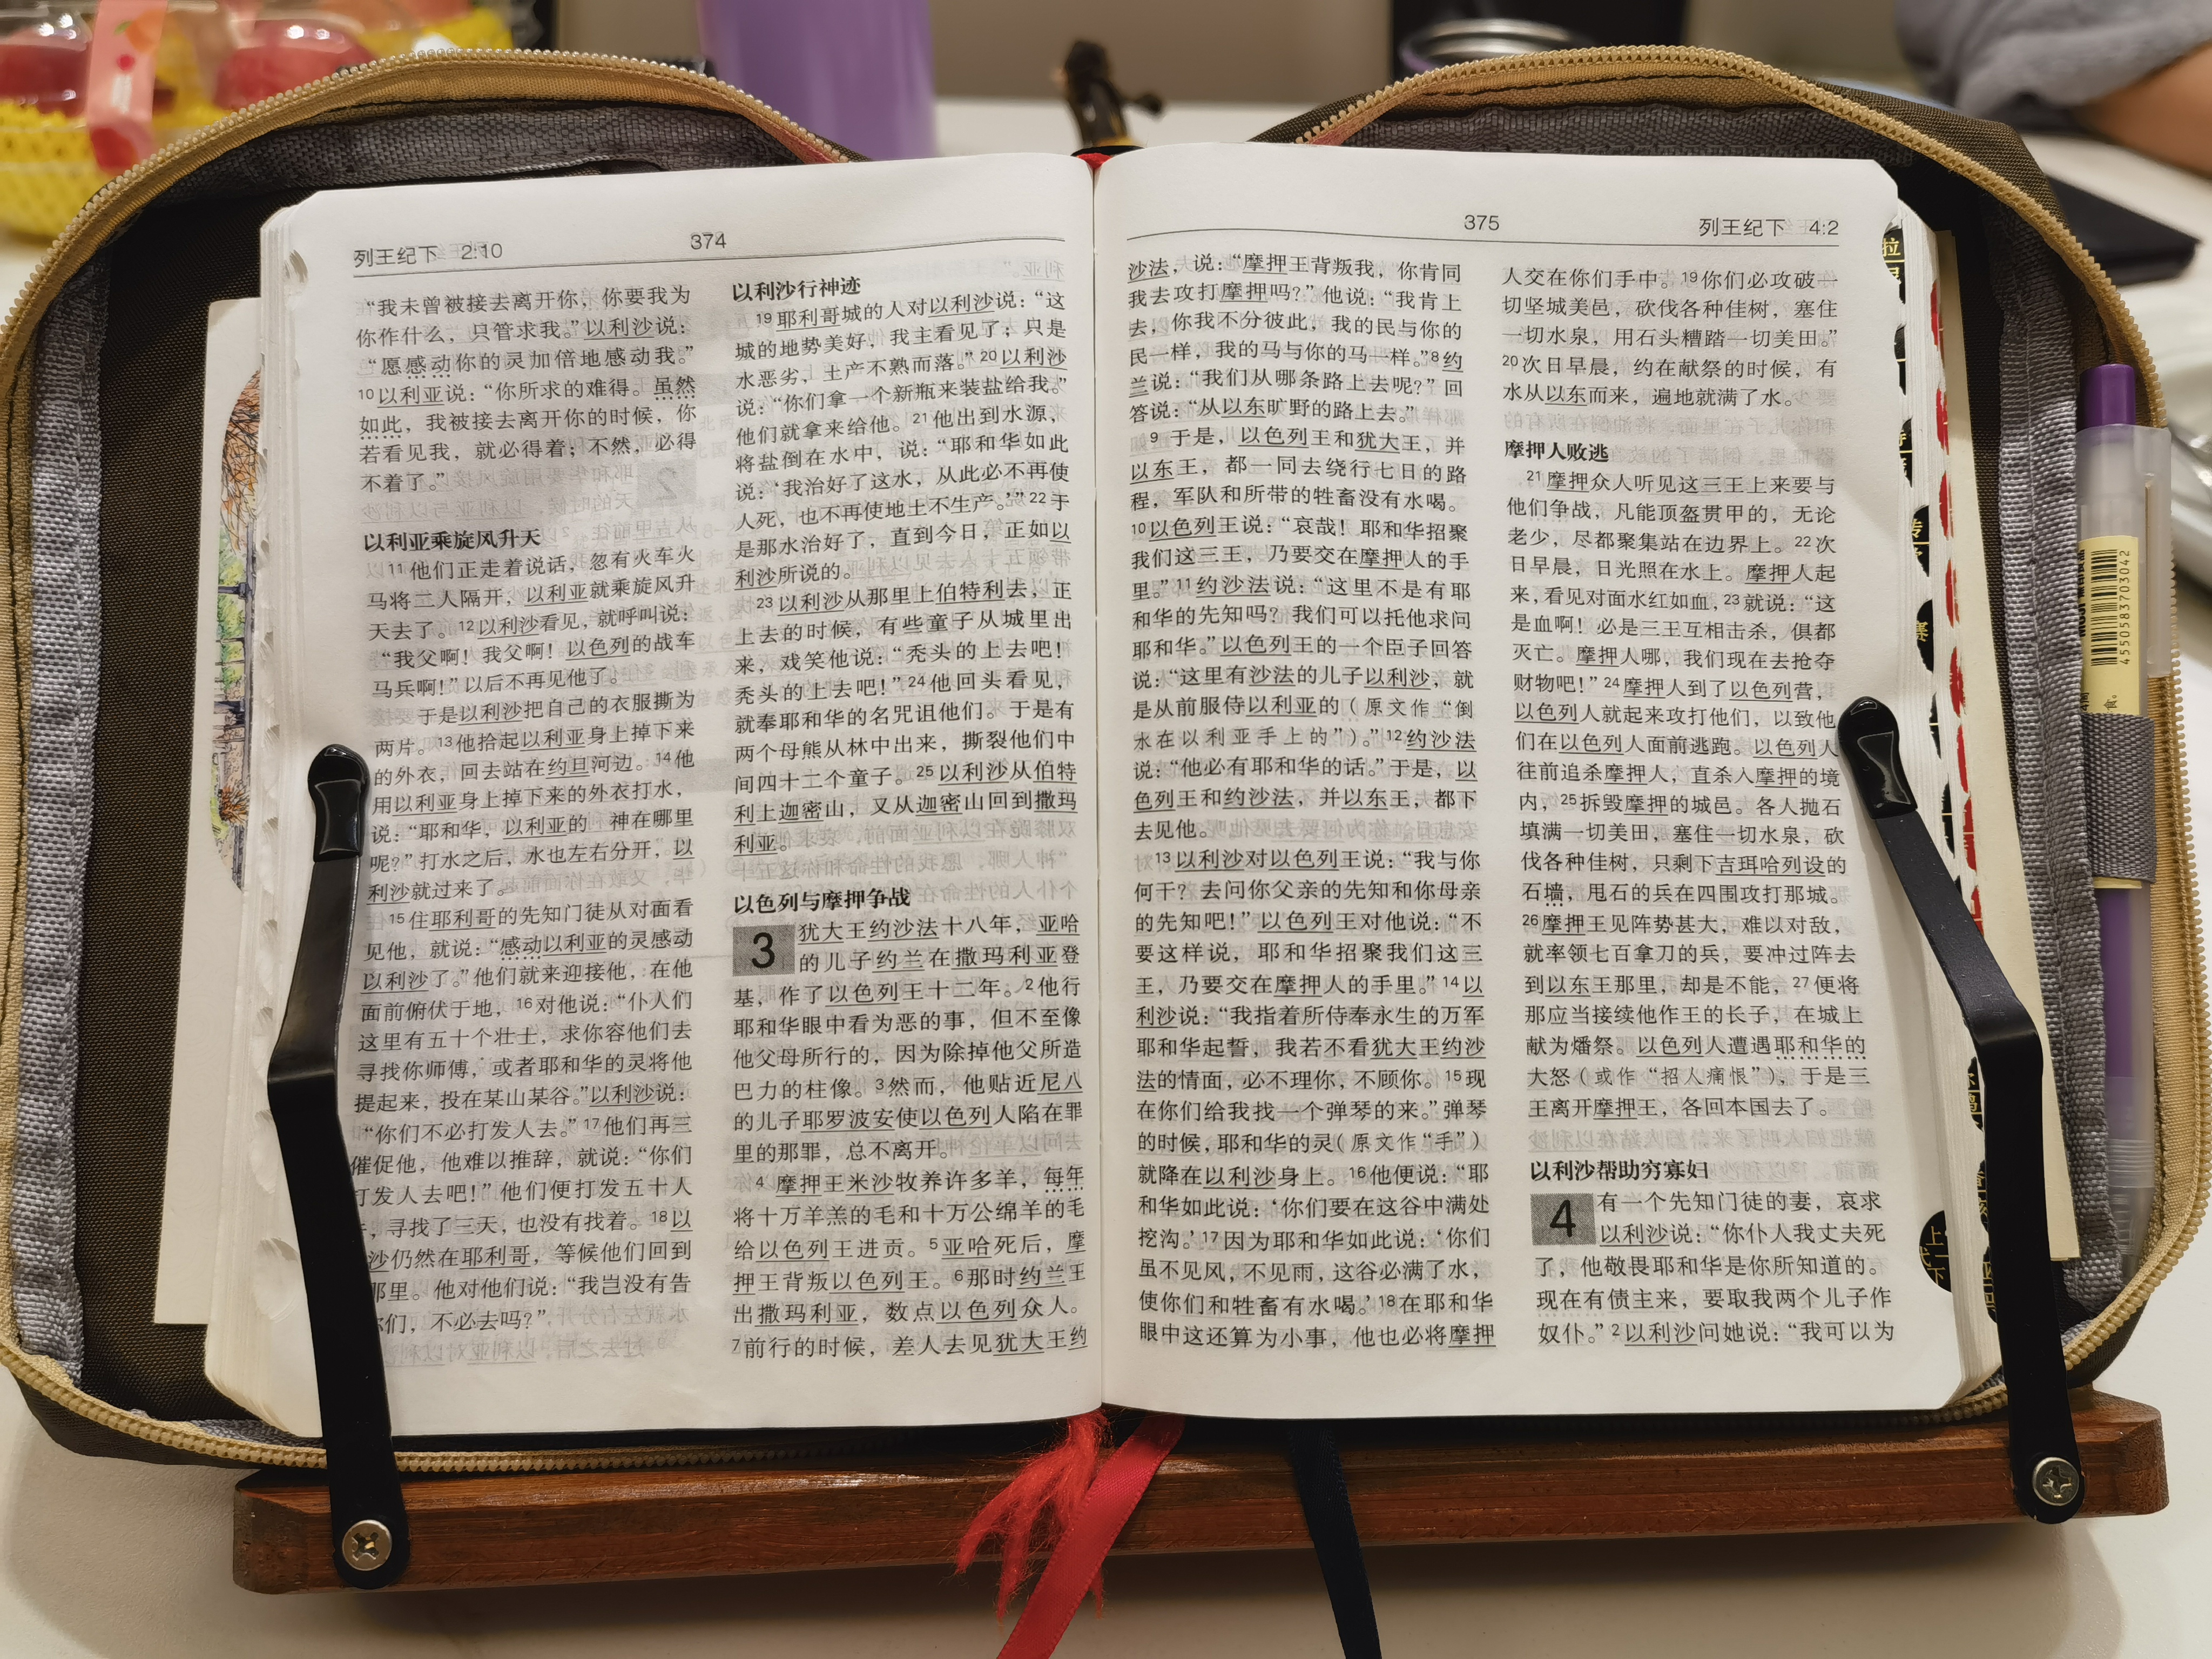 列王纪下 2:10
374
“我未曾被接去离开你，你要我为
你作什么，只管求我。”以利沙说：
“愿感动你的灵加倍地感动我。”
10以利亚说：“你所求的难得。虽然
如此，我被接去离开你的时候，你
若看见我，就必得着；不然，必得
不着了。”
以利亚乘旋风升天
11他们正走着说话，忽有火车火
马将二人隔开，以利亚就乘旋风升
天去了。12以利沙看见，就呼叫说：
“我父啊！我父啊！以色列的战车
马兵啊！”以后不再见他了。
于是以利沙把自己的衣服撕为
两片。13他拾起以利亚身上掉下来
的外衣，回去站在约旦河边。14他
用以利亚身上掉下来的外衣打水，
说：“耶和华，以利亚的 神在哪里
呢？”打水之后，水也左右分开，以
利沙就过来了。
15住耶利哥的先知门徒从对面看
见他，就说：“感动以利亚的灵感动
以利沙了。”他们就来迎接他，在他
面前俯伏于地，16对他说：“仆人们
这里有五十个壮士，求你容他们去
寻找你师傅，或者耶和华的灵将他
提起来，投在某山某谷。”以利沙说：
“你们不必打发人去。”17他们再三
催促他，他难以推辞，就说：“你们
打发人去吧！”他们便打发五十人
，寻找了三天，也没有找着。18以
沙仍然在耶利哥，等候他们回到
那里。他对他们说：“我岂没有告
你们，不必去吗？”
以利沙行神迹
19耶利哥城的人对以利沙说：“这
城的地势美好，我主看见了；只是
水恶劣，土产不熟而落。”20以利沙
说：“你们拿一个新瓶来装盐给我。”
他们就拿来给他。21他出到水源，
将盐倒在水中，说：“耶和华如此
说：‘我治好了这水，从此必不再使
人死，也不再使地土不生产。’”22于
是那水治好了，直到今日，正如以
利沙所说的。
23以利沙从那里上伯特利去，正
上去的时候，有些童子从城里出
来，戏笑他说：“秃头的上去吧！
秃头的上去吧！”24他回头看见，
就奉耶和华的名咒诅他们。于是有
两个母熊从林中出来，撕裂他们中
间四十二个童子。25以利沙从伯特
利上迦密山，又从迦密山回到撒玛
利亚。
以色列与摩押争战
3 犹大王约沙法十八年，亚哈
的儿子约兰在撒玛利亚登
基，作了以色列王十二年。2他行
耶和华眼中看为恶的事，但不至像
他父母所行的，因为除掉他父所造
巴力的柱像。3然而，他贴近尼八
的儿子耶罗波安使以色列人陷在罪
里的那罪，总不离开。
4摩押王米沙牧养许多羊，每年
将十万羊羔的毛和十万公绵羊的毛
给以色列王进贡。5亚哈死后，摩
押王背叛以色列王。6那时约兰王
出撒玛利亚，数点以色列众人。
7前行的时候，差人去见犹大王约
375
列王纪下 4:2
沙法，说：“摩押王背叛我，你肯同
我去攻打摩押吗？”他说：“我肯上
去，你我不分彼此，我的民与你的
民一样，我的马与你的马一样。”8约
兰说：“我们从哪条路上去呢？”回
答说：“从以东旷野的路上去。”
9于是，以色列王和犹大王，并
以东王，都一同去绕行七日的路
程，军队和所带的牲畜没有水喝。
10以色列王说：“哀哉！耶和华招聚
我们这三王，乃要交在摩押人的手
里。”11约沙法说：“这里不是有耶
和华的先知吗？我们可以托他求问
耶和华。”以色列王的一个臣子回答
说：“这里有沙法的儿子以利沙，就
是从前服侍以利亚的（原文作“倒
水在以利亚手上的”）。”12约沙法
说：“他必有耶和华的话。”于是，以
色列王和约沙法，并以东王，都下
去见他。
13以利沙对以色列王说：“我与你
何干？去问你父亲的先知和你母亲
的先知吧！”以色列王对他说：“不
要这样说，耶和华招聚我们这三
王，乃要交在摩押人的手里。”14以
利沙说：“我指着所侍奉永生的万军
耶和华起誓，我若不看犹大王约沙
法的情面，必不理你，不顾你。15现
在你们给我找一个弹琴的来。”弹琴
的时候，耶和华的灵（原文作“手”）
就降在以利沙身上。16他便说：“耶
和华如此说：‘你们要在这谷中满处
挖沟。’17因为耶和华如此说：‘你们
虽不见风，不见雨，这谷必满了水，
使你们和牲畜有水喝。’18在耶和华
眼中这还算为小事，他也必将摩押
人交在你们手中。19你们必攻破一
切坚城美邑，砍伐各种佳树，塞住
一切水泉，用石头糟踏一切美田。”
20次日早晨，约在献祭的时候，有
水从以东而来，遍地就满了水。
摩押人败逃
21摩押众人听见这三王上来要与
他们争战，凡能顶盔贯甲的，无论
老少，尽都聚集站在边界上。22次
日早晨，日光照在水上。摩押人起
来，看见对面水红如血，23就说：“这
是血啊！必是三王互相击杀，俱都
灭亡。摩押人哪，我们现在去抢夺
财物吧！”24摩押人到了以色列营，
以色列人就起来攻打他们，以致他
们在以色列人面前逃跑。以色列人
往前追杀摩押人，直杀入摩押的境
内，25拆毁摩押的城邑。各人抛石
填满一切美田，塞住一切水泉，砍
伐各种佳树，只剩下吉珥哈列设的
石墙，甩石的兵在四围攻打那城。
26摩押王见阵势甚大，难以对敌，
就率领七百拿刀的兵，要冲过阵去
到以东王那里，却是不能，27便将
那应当接续他作王的长子，在城上
献为燔祭。以色列人遭遇耶和华的
大怒（或作“招人痛恨”），于是三
王离开摩押王，各回本国去了。
以利沙帮助穷寡妇
4 有一个先知门徒的妻，哀求
以利沙说：“你仆人我丈夫死
了，他敬畏耶和华是你所知道的。
现在有债主来，要取我两个儿子作
奴仆。”2以利沙问她说：“我可以为
4550583703042